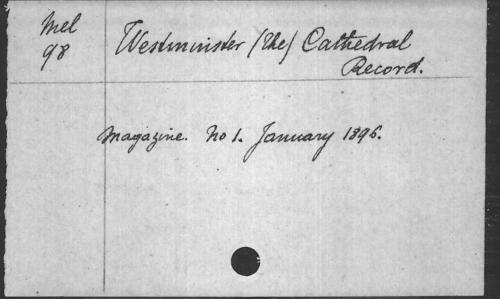 Mel
98
Westminster (The) Cathedral
Record.
Magazine. No 1. January 1896.